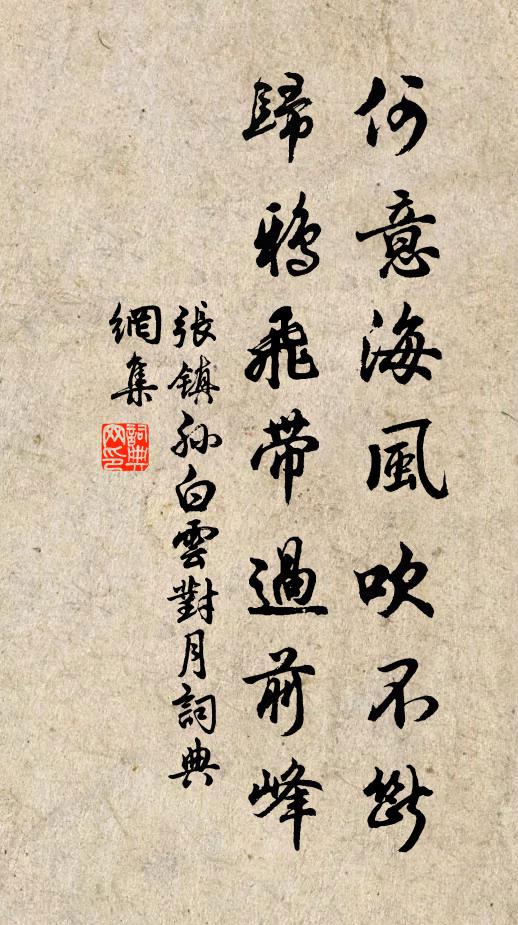 何意海風吹不斷
歸鴉飛帶過前峰
張鎮孙白雲對月詞典
網集
詞典网印